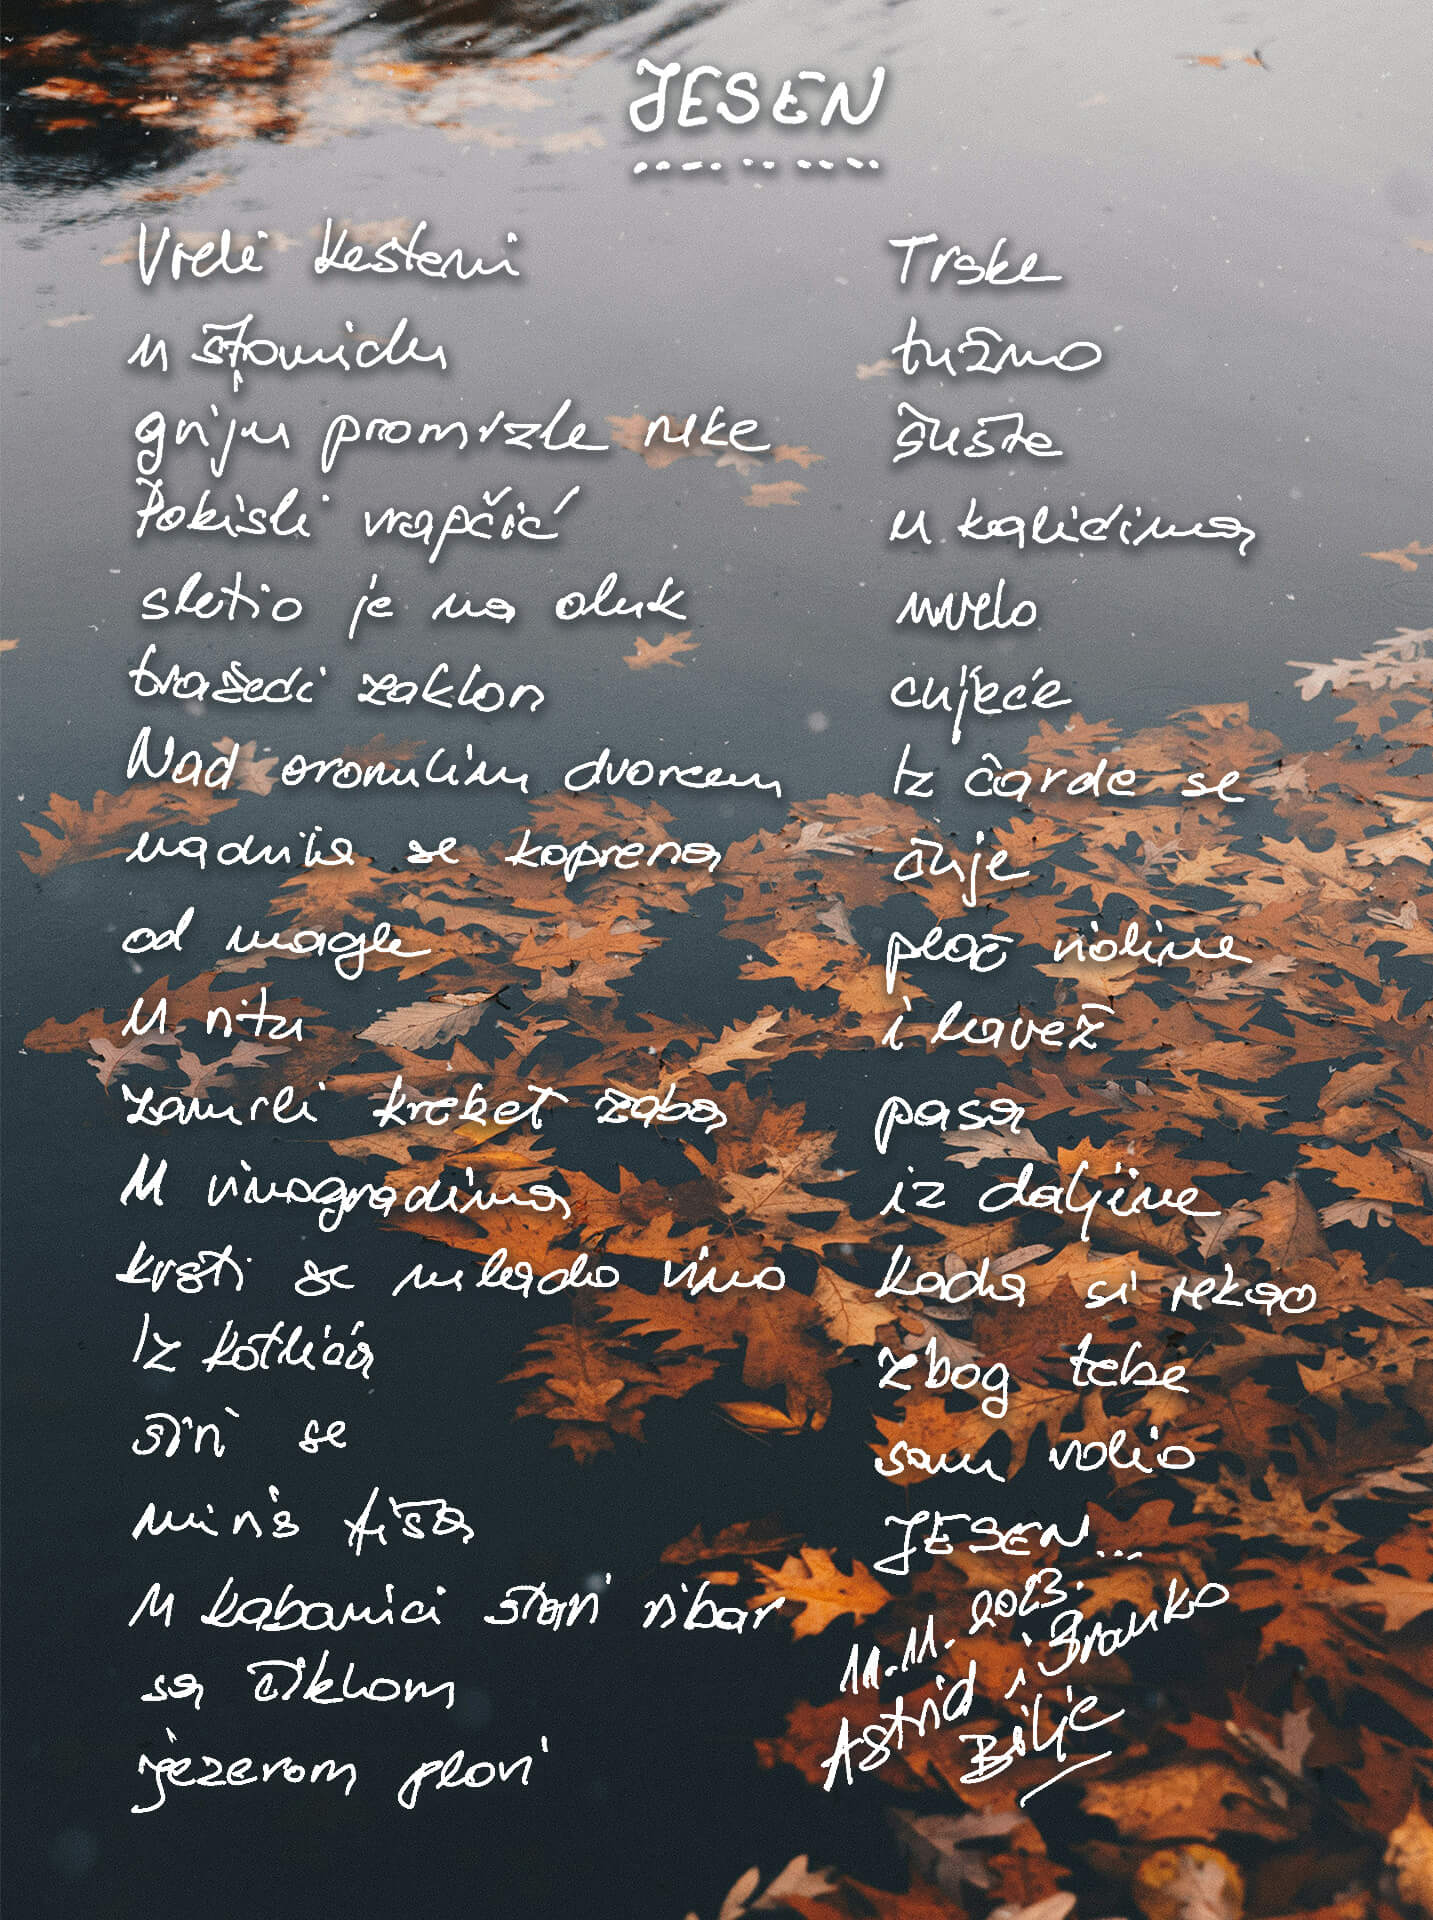 JESEN
Vreli kesteni
u štaniclu
griju promrzle ruke
Pokisli vrapčić
sletio je na oluk
tražeći zaklon
Nad oronulim dvorcem
nadvila se koprena
od magle
U ritu
zamrli kreket žaba
U vinogradima
krsti se mlado vino
Iz kotlića
širi se
miris fiša
U kabanici stari ribar
sa čiklom
jezerom plovi
Trske
tužno
šušte
u kaležima
uvelo
cvijeće
Iz čarde se
čuje
plač violine
i lavež
pasa
iz daljine
Kada si rekao
zbog tebe
sam volio
JESEN...
11.11.2023.
Astrid i Branko
Bilje